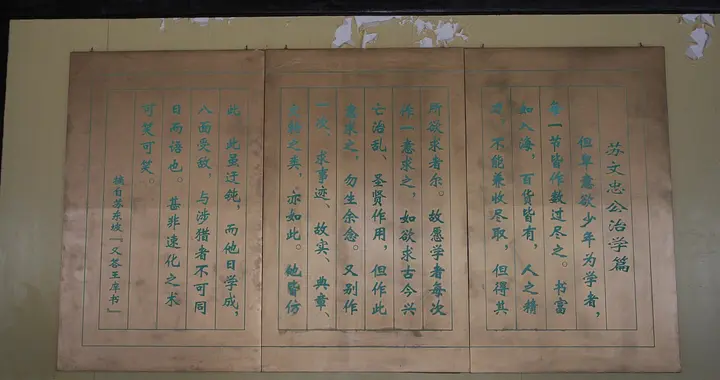 苏文忠公治学篇
但卑意欲少年为学者，
每一节皆作数过尽之。书富
如入海，百货皆有，人之精
力，不能兼收尽取，但得其
所欲求者尔。故愿学者每次
作一意求之，如欲求古今兴
亡治乱、圣贤作用，但作此
意求之，勿生余念。又别作
一次，求事迹、故实、典章、
文物之类，亦如此。他皆仿
此 此虽迂钝，而他日学成，
八面受敌，与涉猎者不可同
日而语也。甚非速化之术
可笑可笑。
摘自苏东坡『又答王庠书』